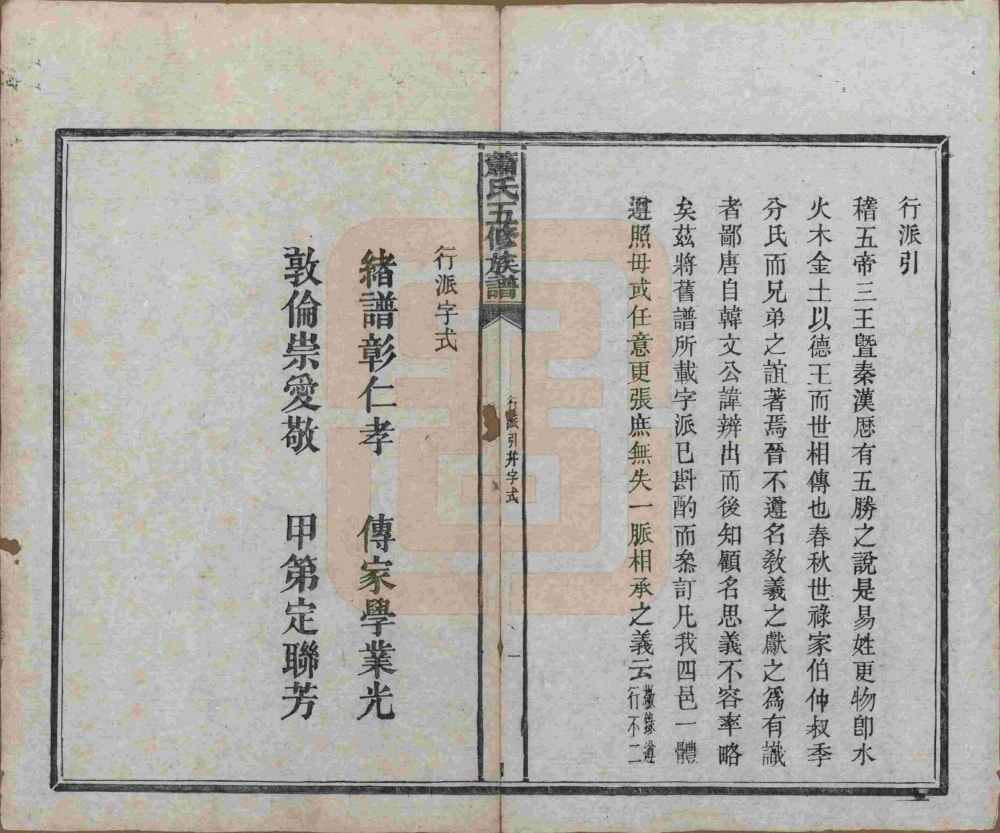 行派引
稽五帝三王曁秦漢厯有五勝之說是易姓更物卽水
火木金土以德王而世相傳也春秋世祿家伯仲叔季
分氏而兄弟之誼著焉晉不遵名敎義之獻之爲有識
者鄙唐自韓文公諱辨出而後知顧名思義不容率略
矣茲將舊譜所載字派已斟酌而叅訂凡我四邑一體
遵照毋或任意更張庶無失一脈相承之義云
遵
行不二
蕭氏五修族譜
行派引并字式
一
行派字式
緒譜彰仁孝 傳家學業光
敦倫崇愛敬 甲第定聯芳